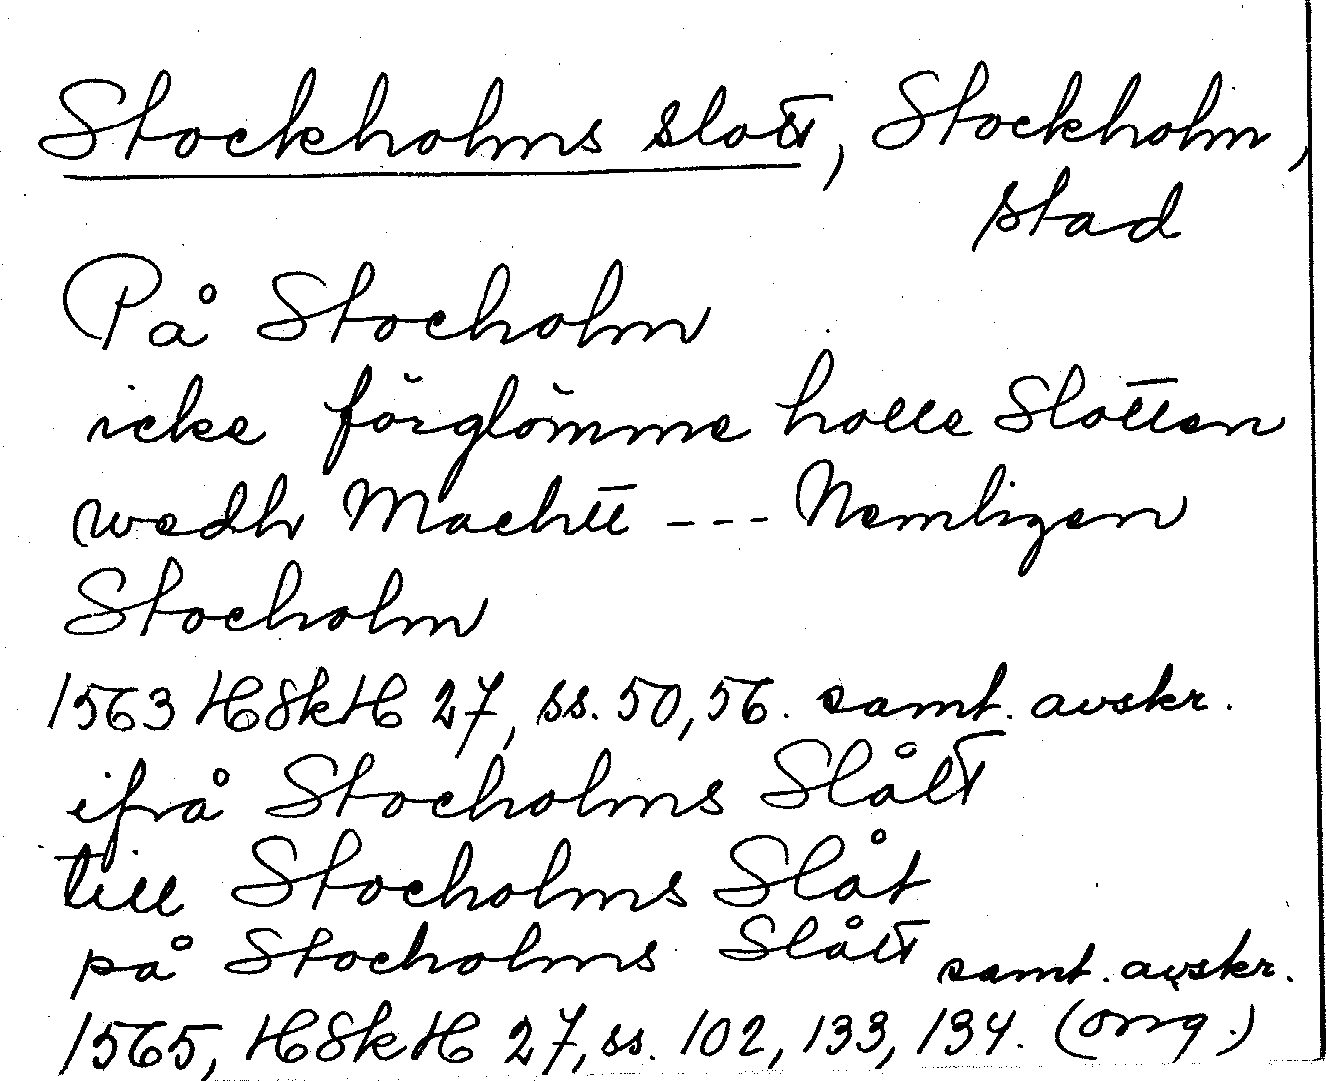 Stockholms slott, Stockholm,
stad
På Stocholm
icke förglömme holle Slotten
wedh Machtt --- Nemligen
Stocholm
1563 HSkH 27, ss. 50, 56. samt. avskr.
ifrå Stocholms Slått
till Stocholms Slåt
på Stocholms Slått samt. avskr.
1565, HSkH 27, ss. 102, 133, 134. (orig.)